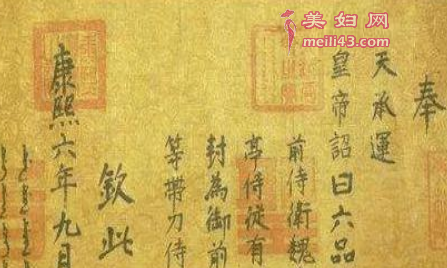 美妇网
meili43.com
奉
天承運
皇帝詔曰六品
前侍衛魏
亭侍從有
封為御前
等帶刀侍
欽此
康熙六年九月